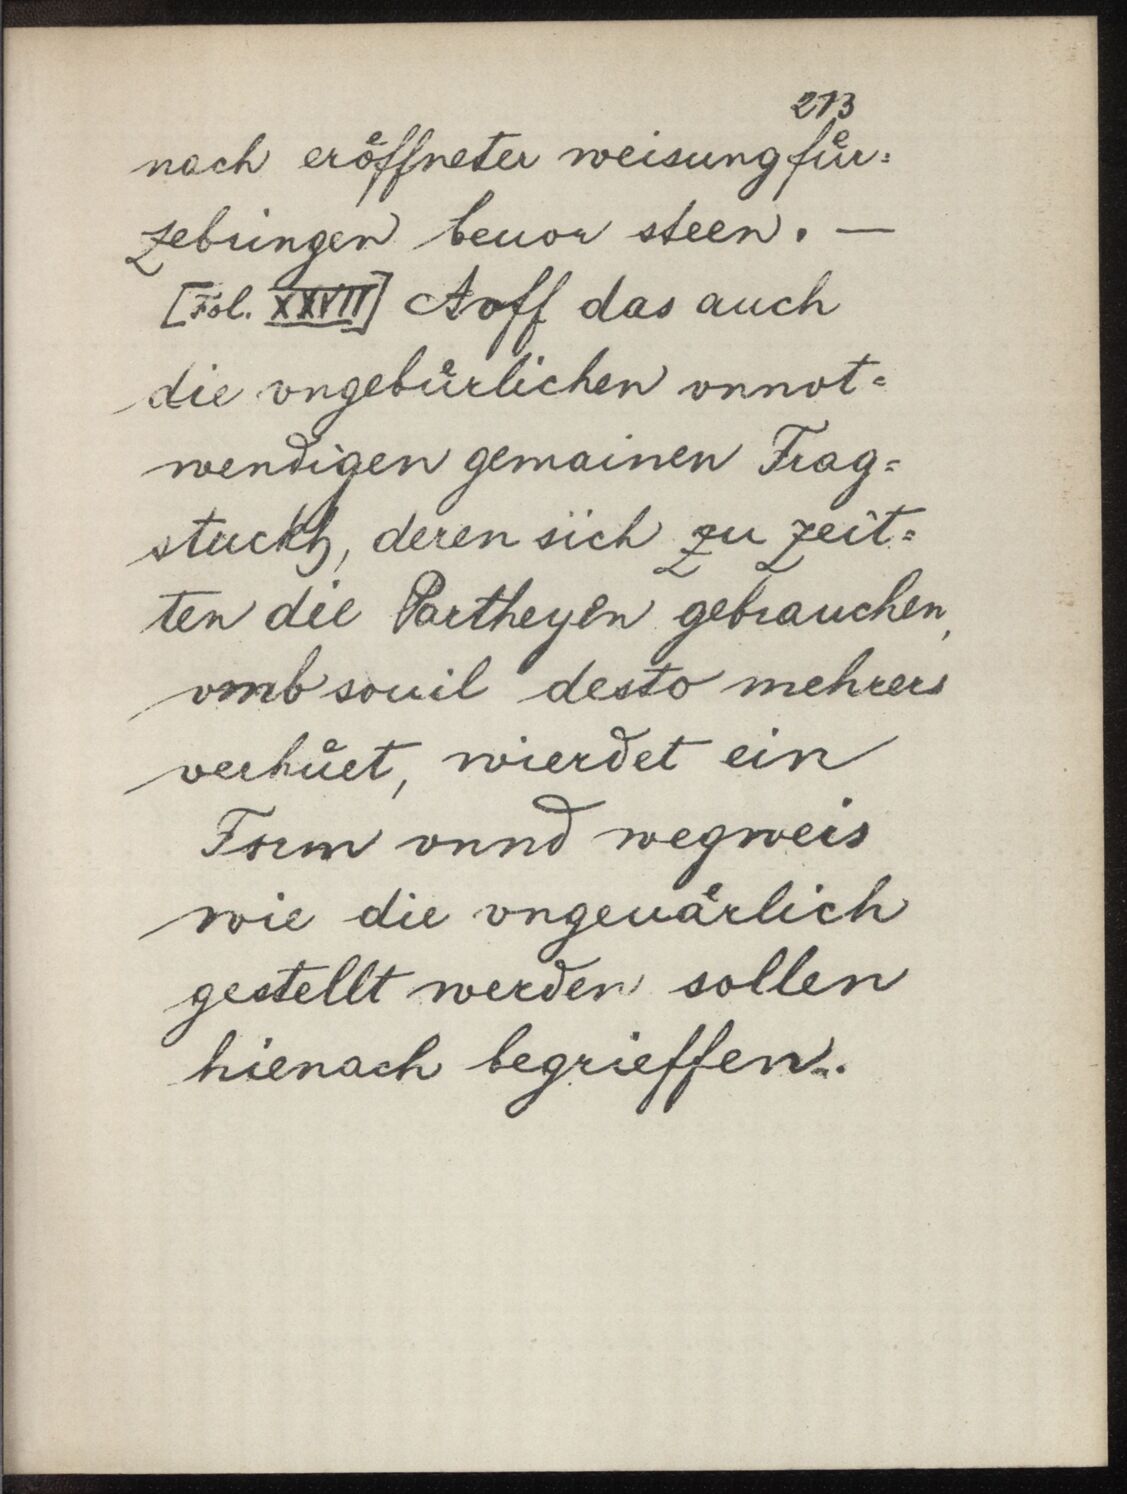 213
nach eröffneter weisung für=
zebringen beuor steen. —
[Fol. XXVII] Auff das auch
die vngebůrlichen vnnot=
wendigen gemainen Frag=
stuckh, deren sich zu zeit=
ten die Partheyen gebrauchen,
vmb souil desto mehrers
verhůet, wierdet ein
Form vnnd wegweis
wie die vngeuärlich
gestellt werden sollen
hienach begrieffen.